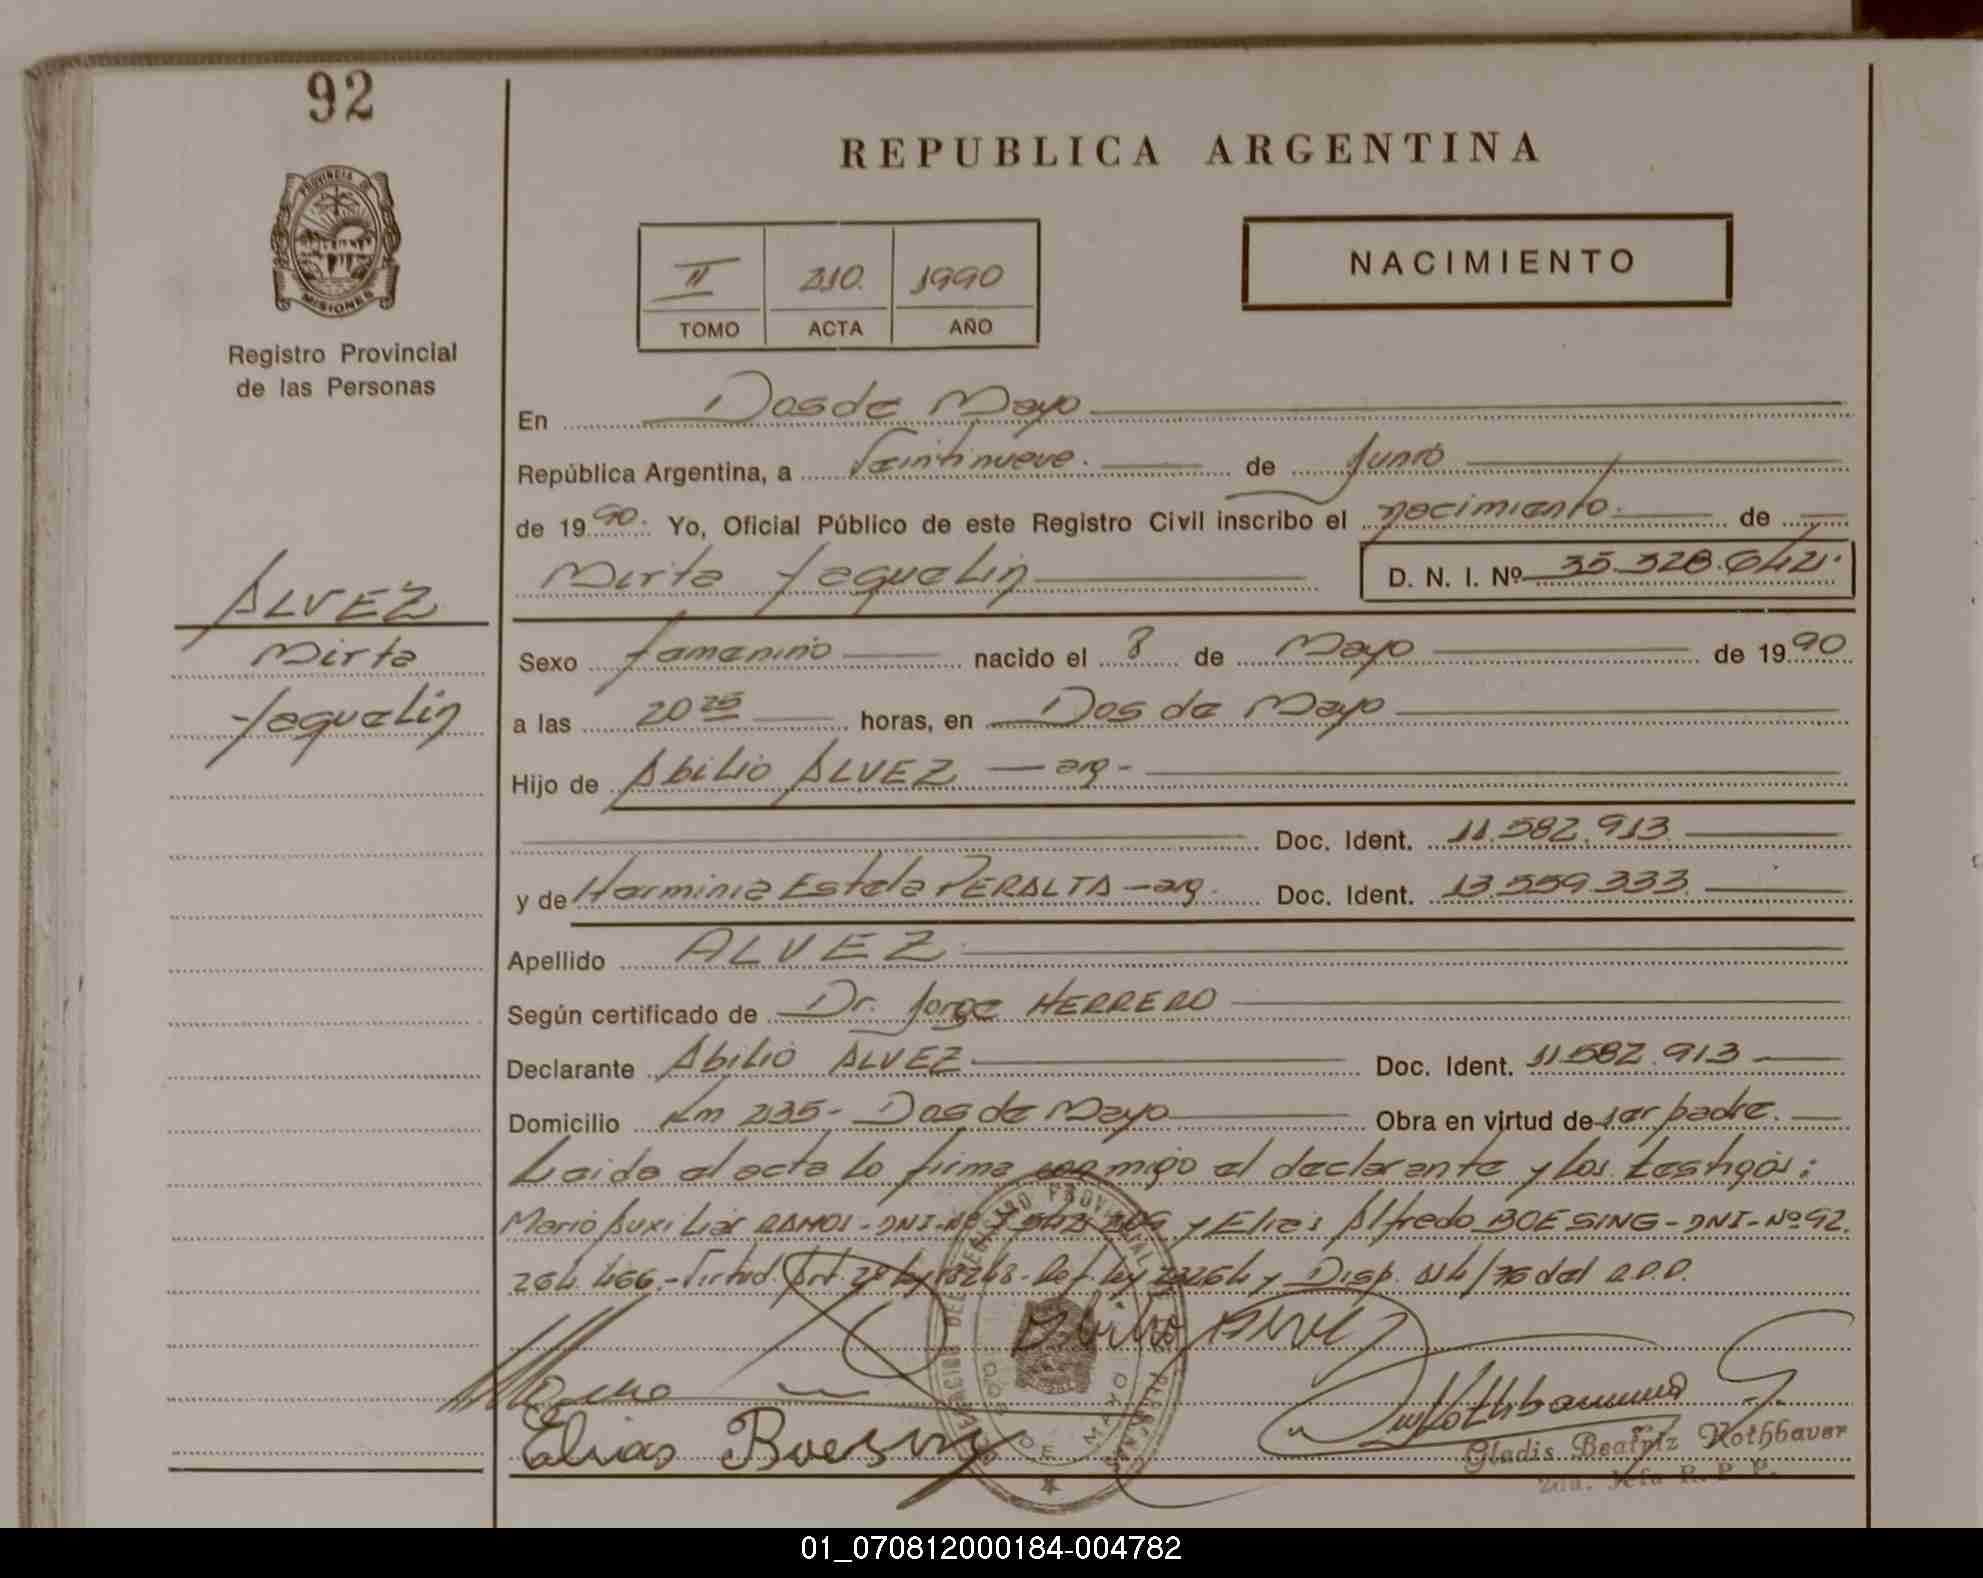 92
REPUBLICA ARGENTINA
PROVINCIA DE
MISIONES
Registro Provincial
de las Personas
II 210. 1990
TOMO ACTA AÑO
NACIMIENTO
En Dos de Mayo
República Argentina, a Veintinueve. de Junio
de 1990. Yo, Oficial Público de este Registro Civil inscribo el nacimiento. de
Mirta Jaquelin D. N. I. Nº 35.328.642.
ALVEZ
Mirta
Jaquelin
Sexo femenino nacido el 8 de Mayo de 1990
a las 20 25 horas, en Dos de Mayo
Hijo de Abilio ALVEZ — arg-
Doc. Ident. 11.582.913
y de Herminia Estela PERALTA - arg. Doc. Ident. 13.559.333
Apellido ALVEZ
Según certificado de Dr. Jorge HERRERO
Declarante Abilio ALVEZ Doc. Ident. 11.582.913
Domicilio Km 235- Dos de Mayo Obra en virtud de ser padre.
Leida el acta lo firma conmigo el declarante y los testigos:
Mario Auxiliar RAMOS - DNI-Nº y Elias Alfredo BOESING - DNI-Nº 92.
264.466.- Virtud. Art. 29 ley 18248- Ref. ley 23264 y Disp. /76 del R.P.P.
Abilio Alvez
Elias Boesing
Gladis Beatriz Rothbauer
2da. Jefa R. P. P.
DOS DE MAYO
01_070812000184-004782